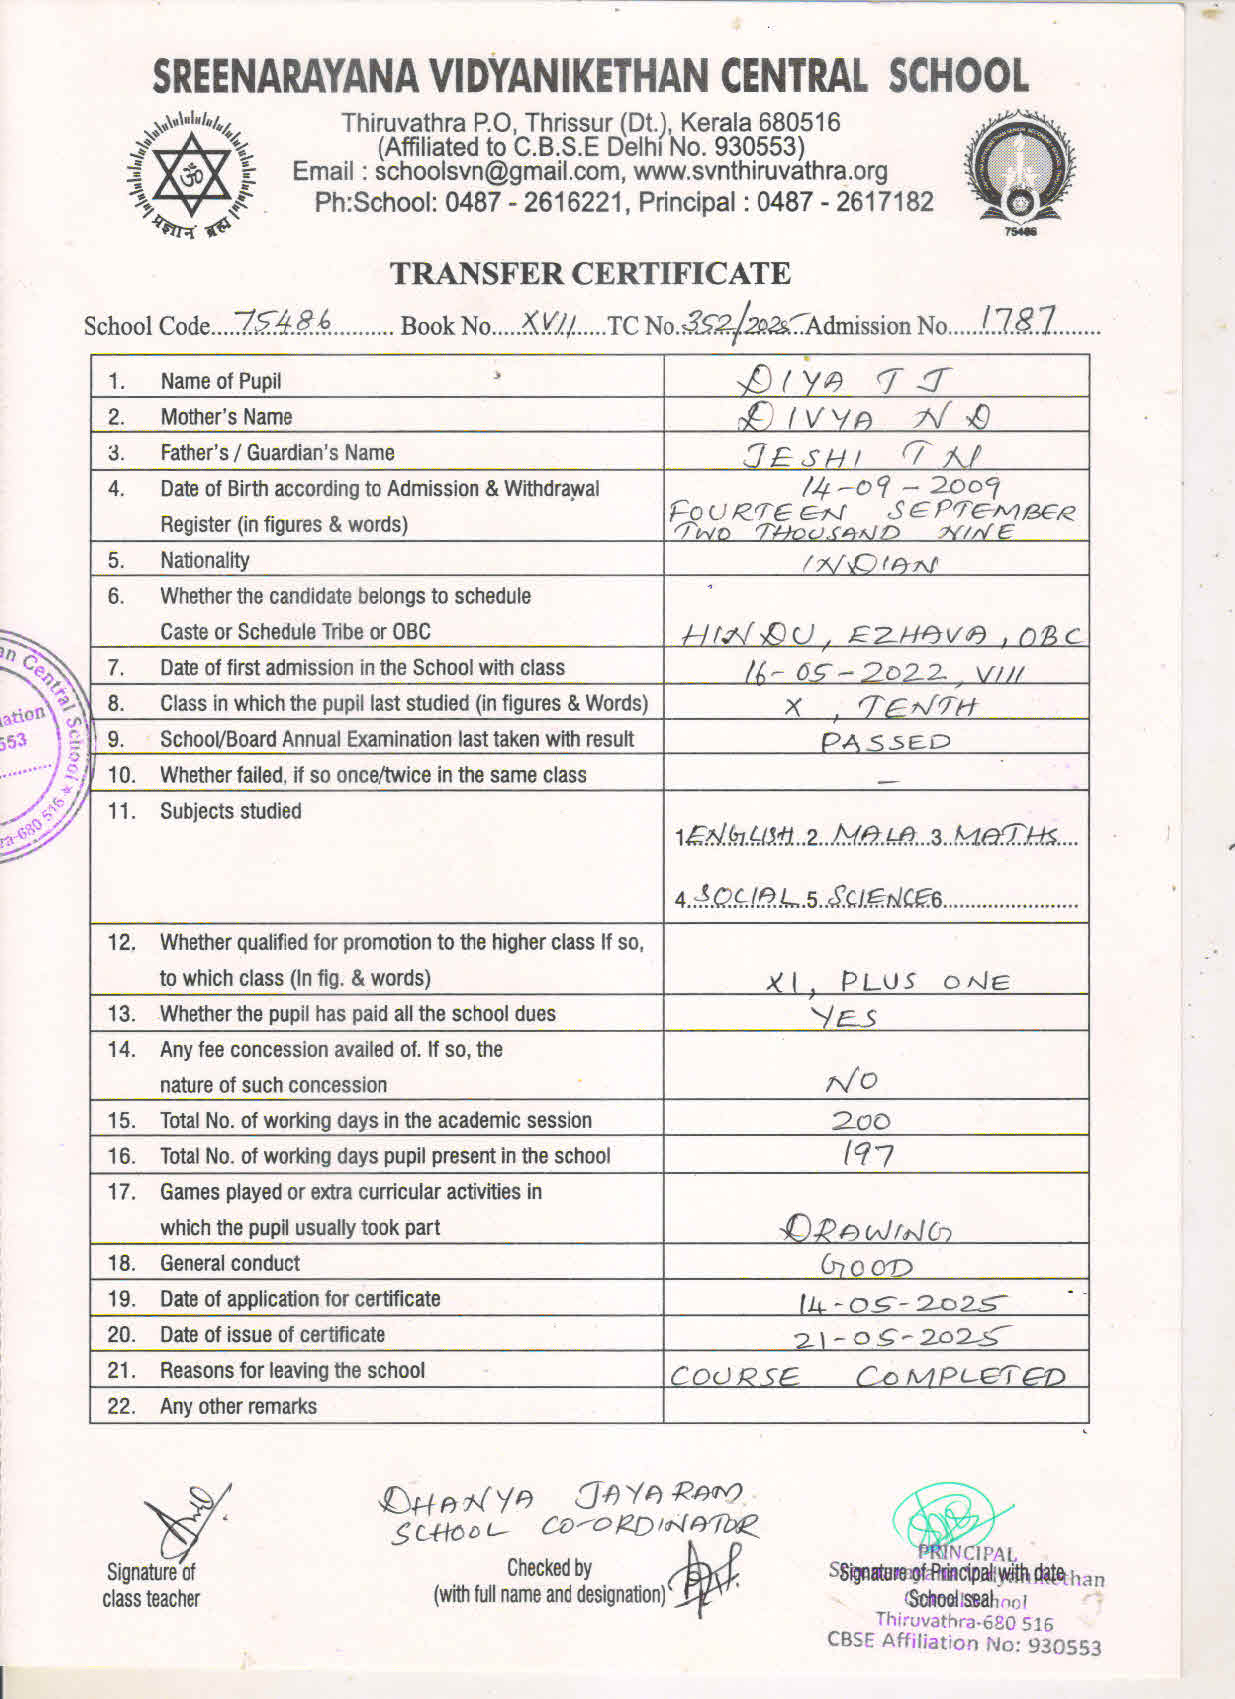 SREENARAYANA VIDYANIKETHAN CENTRAL SCHOOL
Thiruvathra P.O, Thrissur (Dt.), Kerala 680516
(Affiliated to C.B.S.E Delhi No. 930553)
Email : schoolsvn@gmail.com, www.svnthiruvathra.org
Ph:School: 0487 - 2616221, Principal : 0487 - 2617182
प्रज्ञानं ब्रह्म
75486
TRANSFER CERTIFICATE
School Code....75486.......... Book No....XVII.....TC No.352/2025 Admission No.....1787.......
1. Name of Pupil DIYA T J
2. Mother's Name DIVYA N D
3. Father's / Guardian's Name JESHI T N
4. Date of Birth according to Admission & Withdrawal 14-09-2009
Register (in figures & words) FOURTEEN SEPTEMBER
TWO THOUSAND NINE
5. Nationality INDIAN
6. Whether the candidate belongs to schedule
Caste or Schedule Tribe or OBC HINDU, EZHAVA, OBC
7. Date of first admission in the School with class 16-05-2022, VIII
8. Class in which the pupil last studied (in figures & Words) X, TENTH
9. School/Board Annual Examination last taken with result PASSED
10. Whether failed, if so once/twice in the same class —
11. Subjects studied
1 ENGLISH 2 MALA 3 MATHS
4 SOCIAL 5 SCIENCE 6
12. Whether qualified for promotion to the higher class If so,
to which class (In fig. & words) XI, PLUS ONE
13. Whether the pupil has paid all the school dues YES
14. Any fee concession availed of. If so, the
nature of such concession NO
15. Total No. of working days in the academic session 200
16. Total No. of working days pupil present in the school 197
17. Games played or extra curricular activities in
which the pupil usually took part DRAWING
18. General conduct GOOD
19. Date of application for certificate 14-05-2025
20. Date of issue of certificate 21-05-2025
21. Reasons for leaving the school COURSE COMPLETED
22. Any other remarks
an Central School
ation
553
ra-680 516
DHANYA JAYARAM
SCHOOL CO-ORDINATOR
Signature of
class teacher
Checked by
(with full name and designation)
PRINCIPAL
Signature of Principal with date
School seal
Thiruvathra-680 516
CBSE Affiliation No: 930553